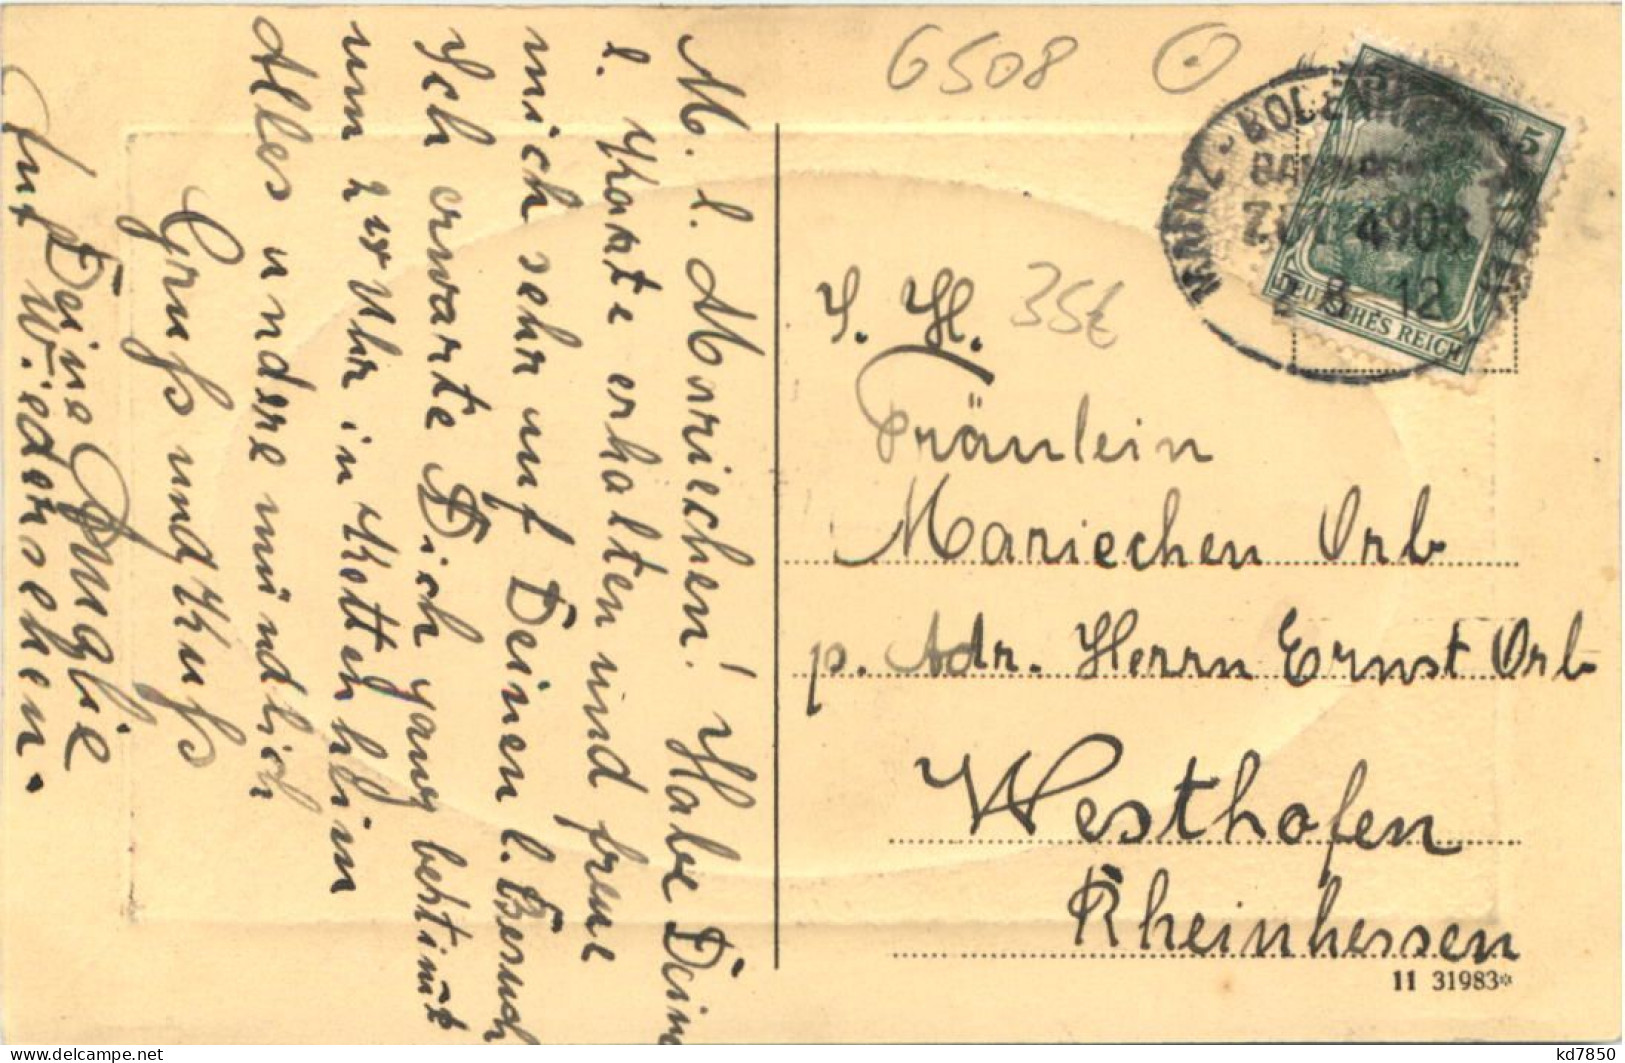 M. l. Mariechen! Habe Deine
l. Karte erhalten und freue
mich sehr auf Deinen l. Besuch
Ich erwarte Dich ganz bestimt
um 2 Uhr in Kettenheim
Alles andere mündlich
Gruß und Kuß
Deine Amalie
Auf Wiedersehen.
6508
35€
MAINZ - BODENH
ZUG 4908
8 12
5
DEUTSCHES REICH
S. H.
Fräulein
Mariechen Orb
p. Adr. Herrn Ernst Orb
Westhofen
Rheinhessen
11 31983*
delcampe.net
kd7850